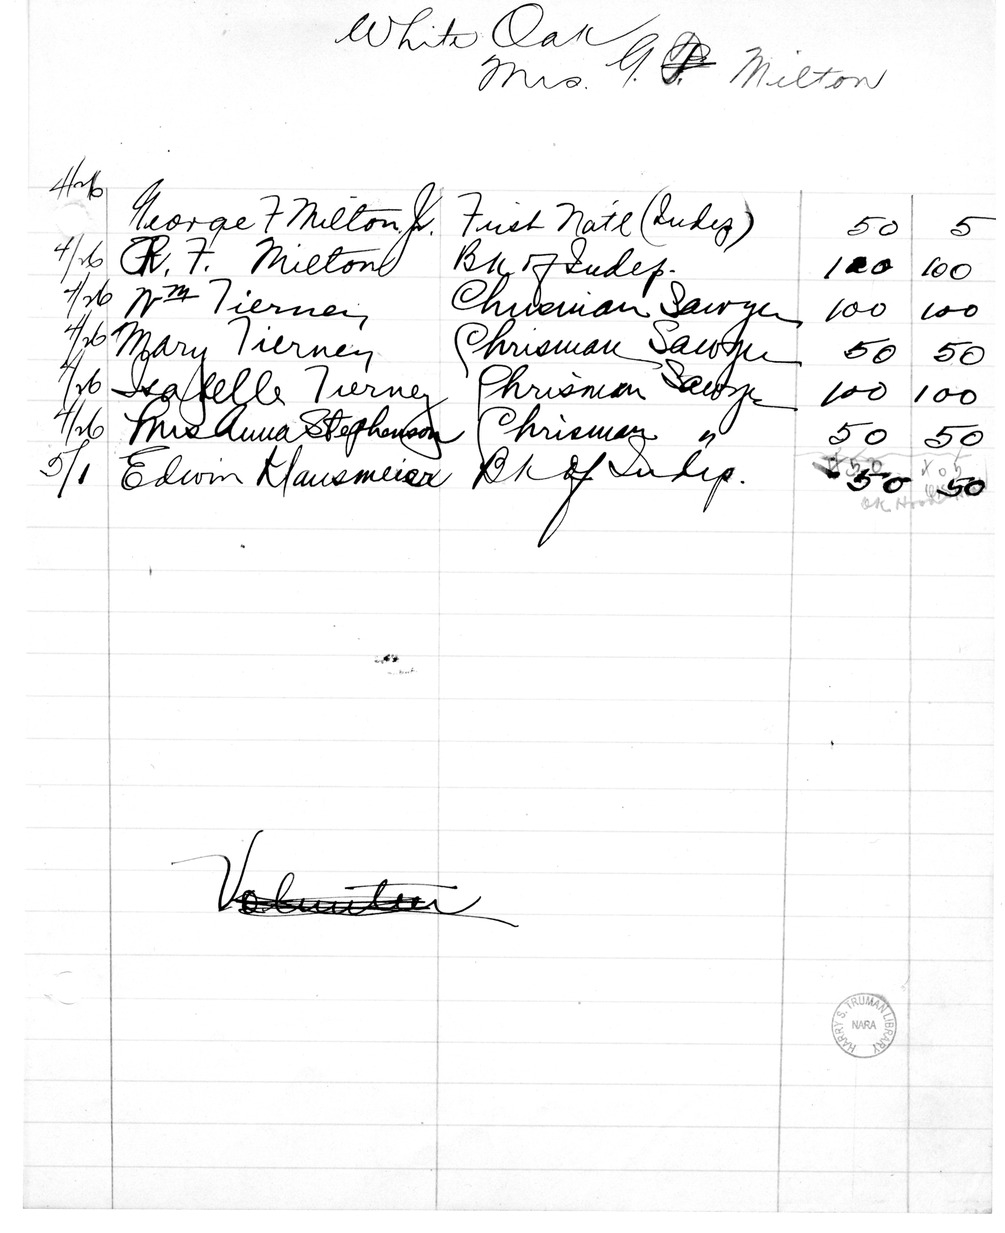 White Oak
Mrs. G. F. Milton
4/26 George F Milton Jr. First Nat'l (Indep) 50 5
4/26 R. F. Milton Bk of Indep. 100 100
4/26 Wm Tierney Chrisman Sawyer 100 100
4/26 Mary Tierney Chrisman Sawyer 50 50
4/26 Isabelle Tierney Chrisman Sawye 100 100
4/26 Mrs Anna Stephenson Chrisman " 50 50
5/1 Edwin Hausmeier Bk of Indep. 50 50
OK
Volunteer
HARRY S. TRUMAN LIBRARY
NARA